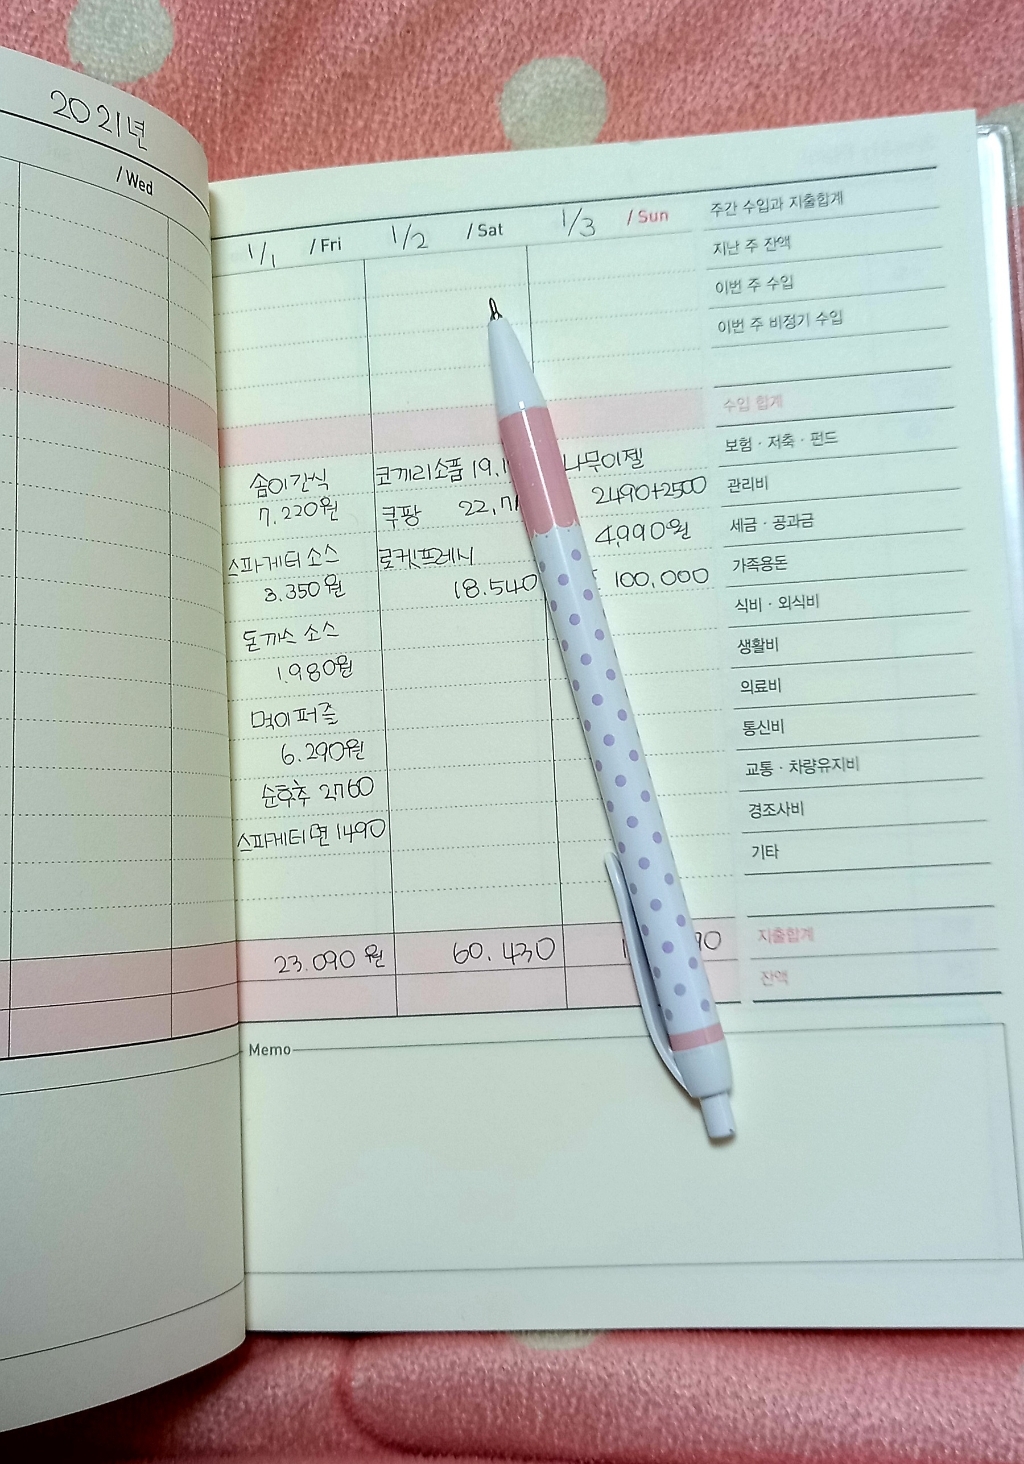 2021년
/ Wed
1/1 / Fri 1/2 / Sat 1/3 / Sun
솜이간식
7.220원
스파게티 소스
3.350원
돈까스 소스
1.980원
먹이퍼즐
6.290원
순후추 2760
스파게티면 1490
23.090 원
코끼리소품 19.1
쿠팡 22,71
로켓프레시
18.540
60.430
나무이젤
2490+2500
4,990원
100,000
90
주간 수입과 지출합계
지난 주 잔액
이번 주 수입
이번 주 비정기 수입
수입 합계
보험 · 저축 · 펀드
관리비
세금 · 공과금
가족용돈
식비 · 외식비
생활비
의료비
통신비
교통 · 차량유지비
경조사비
기타
지출합계
잔액
Memo